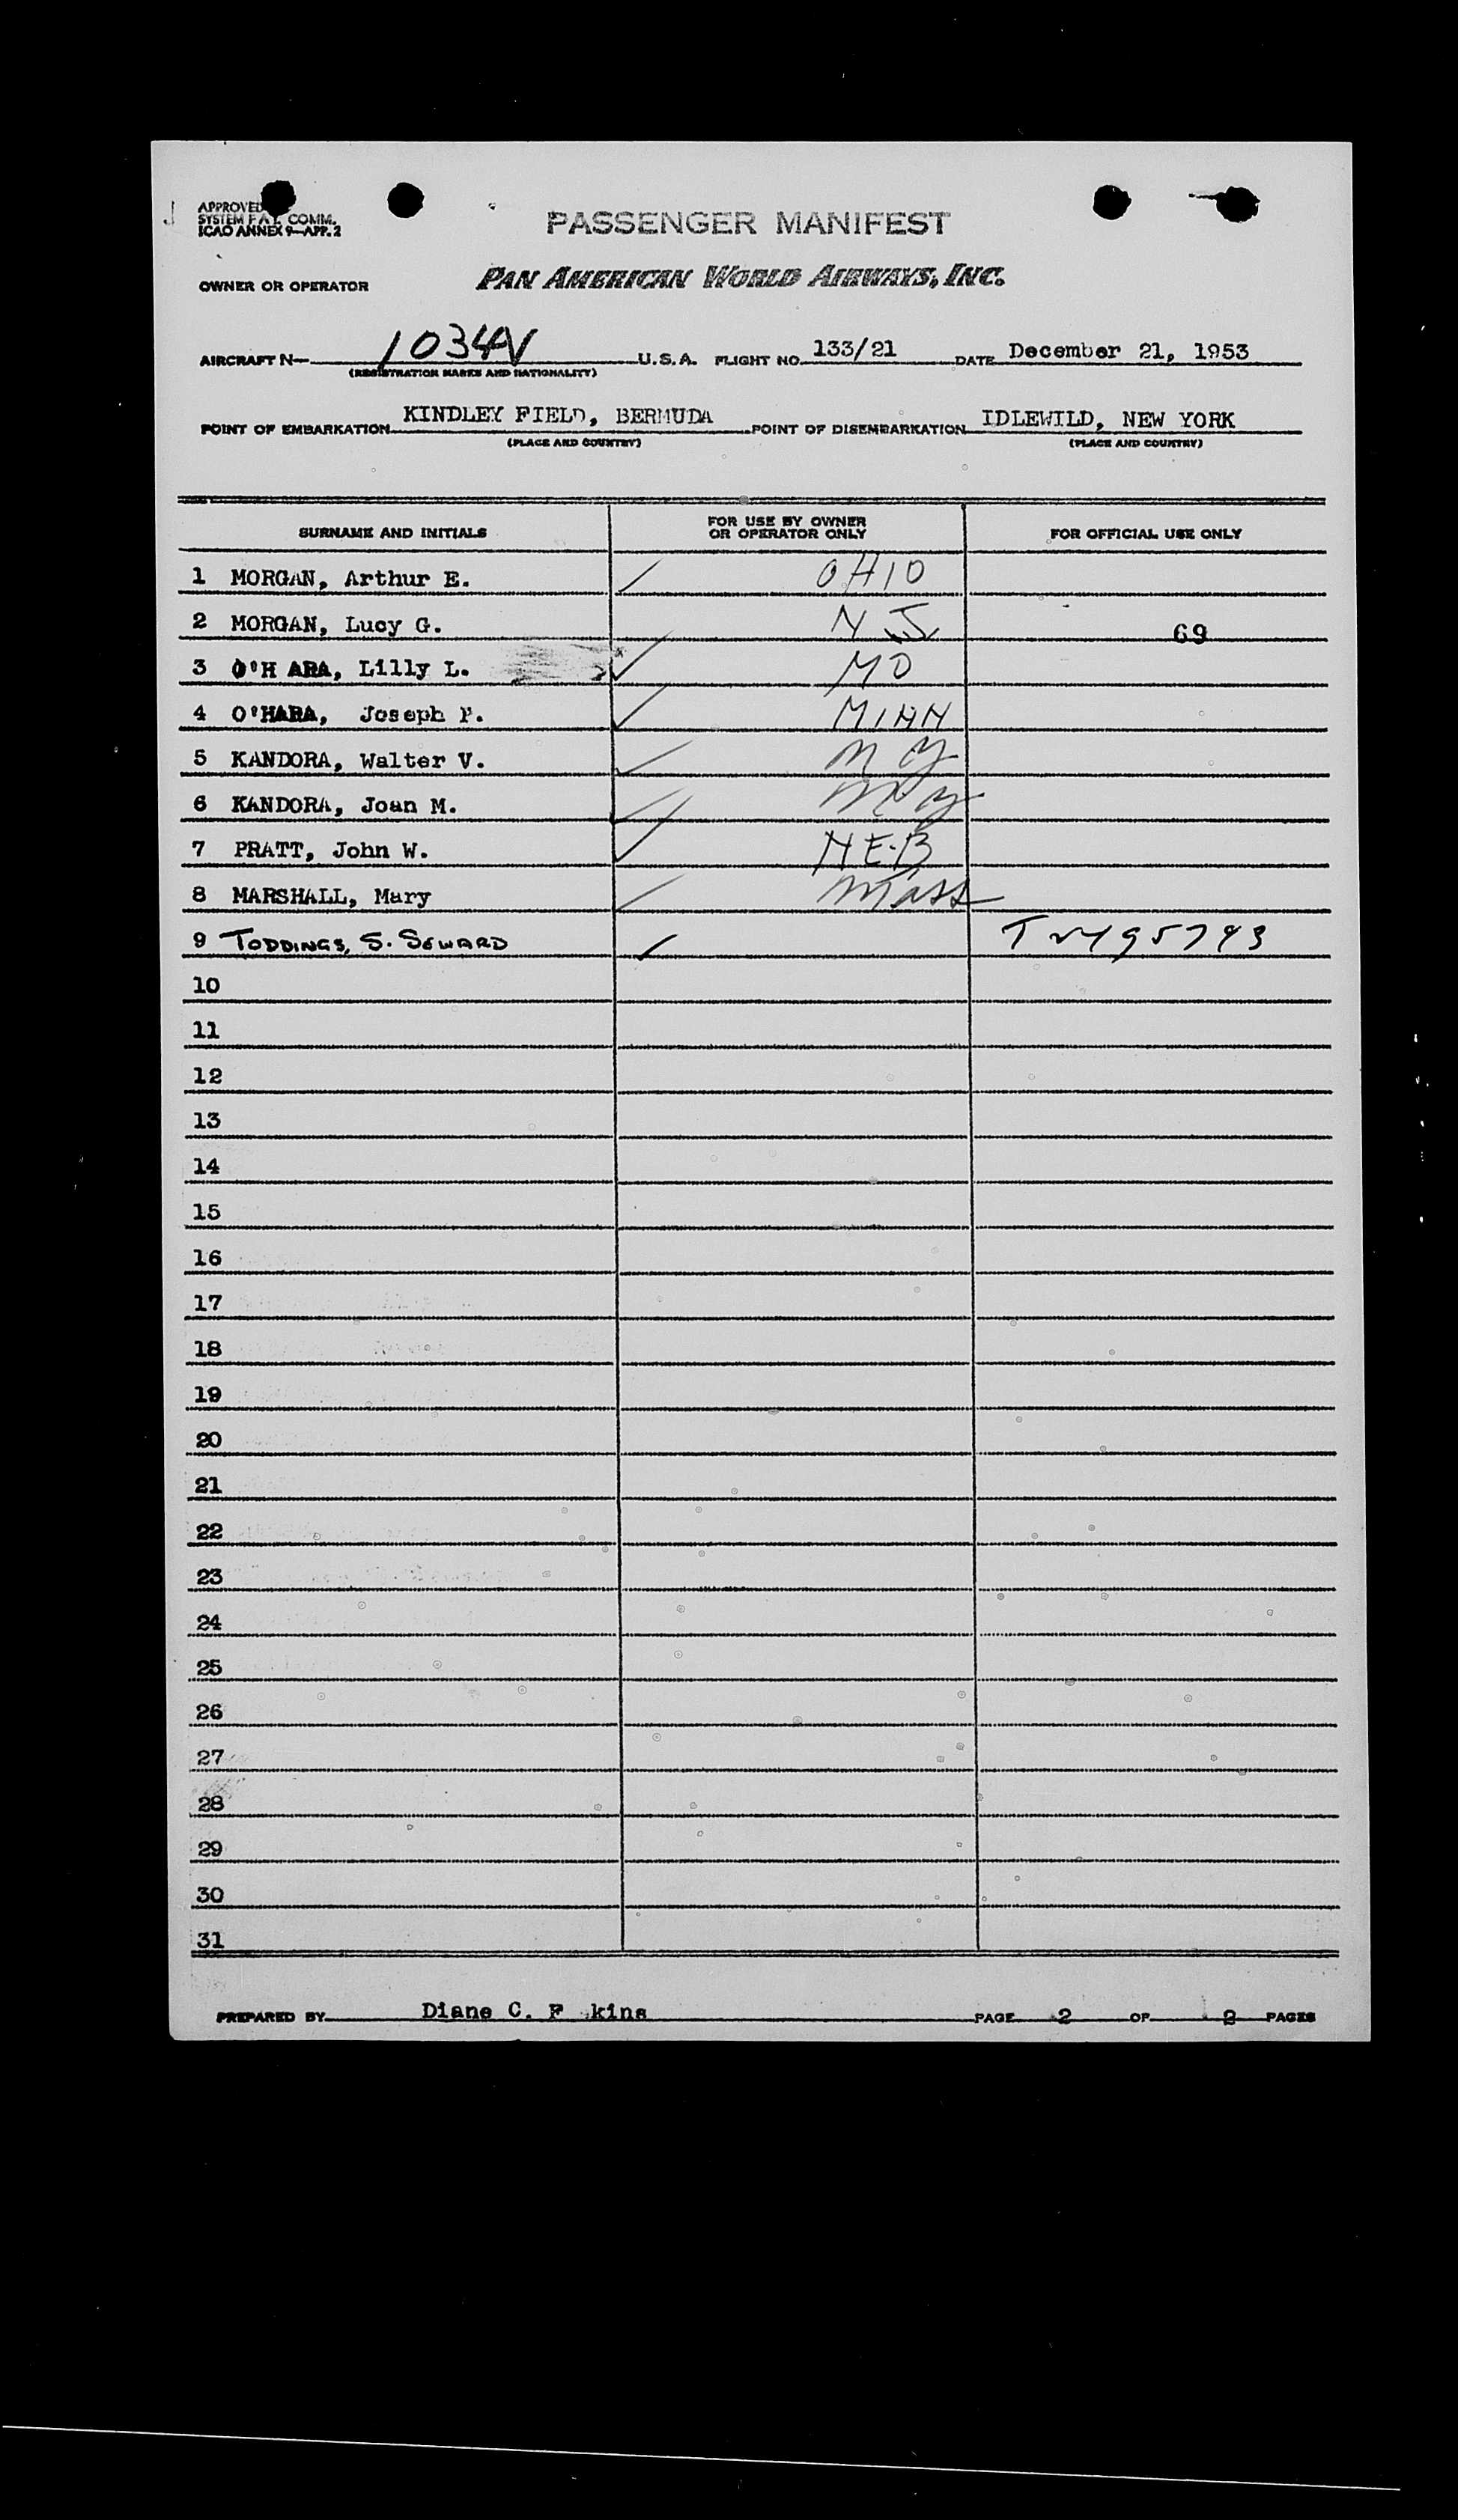 APPROVED
SYSTEM F A L COMM.
ICAO ANNEX 9—APP. 2
PASSENGER MANIFEST
OWNER OR OPERATOR PAN AMERICAN WORLD AIRWAYS, INC.
AIRCRAFT N— 1034V U.S.A. FLIGHT NO. 133/21 DATE December 21, 1953
(REGISTRATION MARKS AND NATIONALITY)
POINT OF EMBARKATION KINDLEY FIELD, BERMUDA POINT OF DISEMBARKATION IDLEWILD, NEW YORK
(PLACE AND COUNTRY) (PLACE AND COUNTRY)
SURNAME AND INITIALS FOR USE BY OWNER OR OPERATOR ONLY FOR OFFICIAL USE ONLY
1 MORGAN, Arthur E. OHIO
2 MORGAN, Lucy G. N J 69
3 O'H ARA, Lilly L. MO
4 O'HARA, Joseph P. MINN
5 KANDORA, Walter V. N Y
6 KANDORA, Joan M. N Y
7 PRATT, John W. NEB
8 MARSHALL, Mary Mass
9 TODDINGS, S. SEWARD
10
11
12
13
14
15
16
17
18
19
20
21
22
23
24
25
26
27
28
29
30
31
PREPARED BY Diane C. PAGE 2 OF 2 PAGES